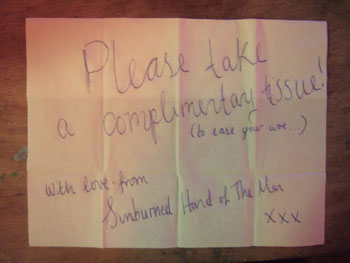 Please take
a complimentary tissue!
(to ease your woe...)
with love from
Sunburned Hand of The Man
xxx